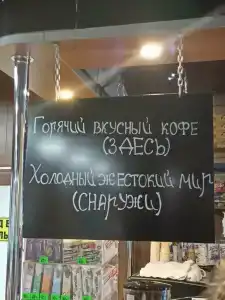 Горячий вкусный кофе
(здесь)
Холодный жестокий мир
(снаружи)